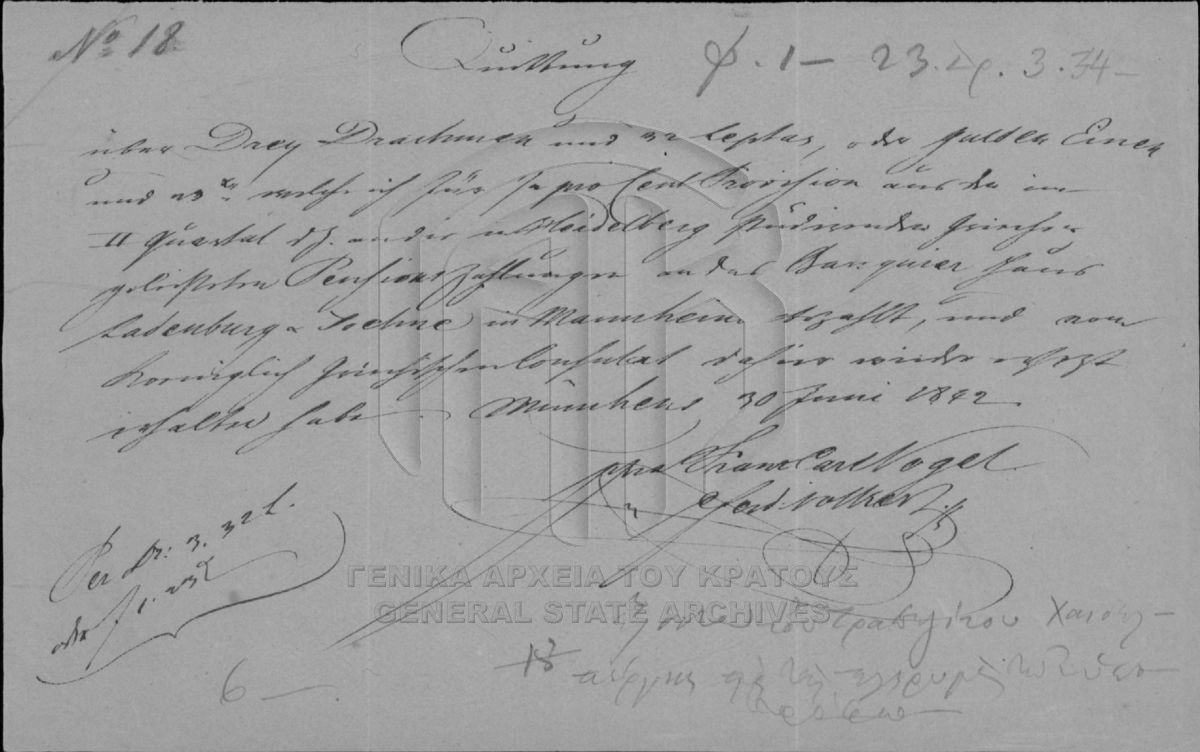 No 18
Quittung
f. 1 — 23. Δρ. 3. 34 —
über Drey Drachmen und 32 Leptas, oder Gulden Einen
und 23 xr welche ich für ½ pro Cent Provision aus den im
II Quartal d. J. an die in Heidelberg studirenden Griechen
geleisteten Pensionszahlungen an das Banquier Haus
Ladenburg & Soehne in Mannheim bezahlt, und vom
Koeniglich Griechischen Consulat dahier wieder ersetzt
erhalten habe. München 30 Juni 1842.
ppra Franz Carl Vogel
Ferd. Volkert
Per Dr: 3. 32 L.
oder f 1. 23 x
ΓΕΝΙΚΑ ΑΡΧΕΙΑ ΤΟΥ ΚΡΑΤΟΥΣ
GENERAL STATE ARCHIVES
τοῦ τραπεζίτου
18
6 —